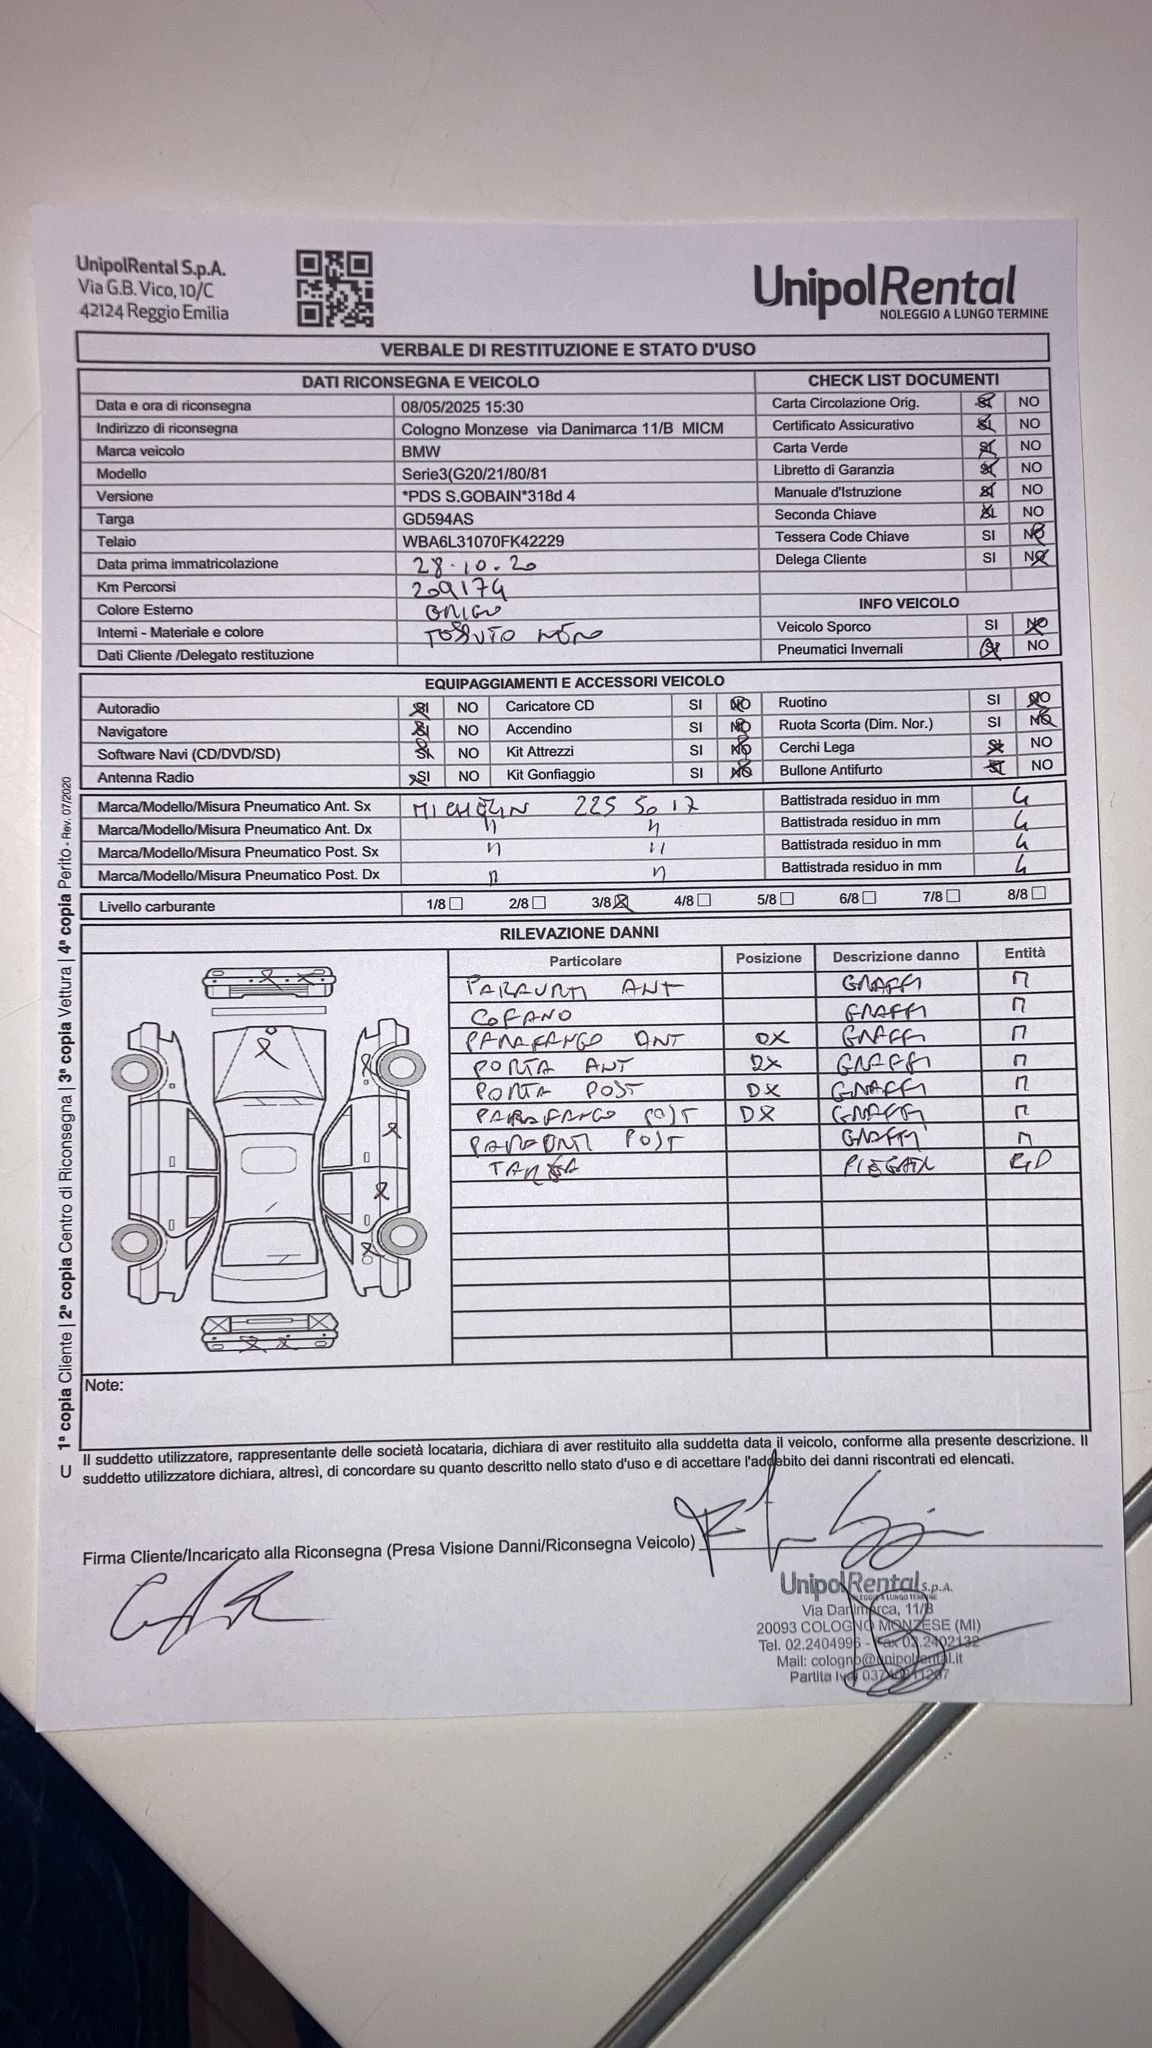 UnipolRental S.p.A.
Via G.B. Vico, 10/C
42124 Reggio Emilia
UnipolRental
NOLEGGIO A LUNGO TERMINE
VERBALE DI RESTITUZIONE E STATO D'USO
DATI RICONSEGNA E VEICOLO
Data e ora di riconsegna 08/05/2025 15:30
Indirizzo di riconsegna Cologno Monzese via Danimarca 11/B MICM
Marca veicolo BMW
Modello Serie3(G20/21/80/81
Versione *PDS S.GOBAIN*318d 4
Targa GD594AS
Telaio WBA6L31070FK42229
Data prima immatricolazione 28.10.20
Km Percorsi 209174
Colore Esterno GRIGIO
Interni - Materiale e colore TESSUTO NERO
Dati Cliente /Delegato restituzione
CHECK LIST DOCUMENTI
Carta Circolazione Orig. SI NO
Certificato Assicurativo SI NO
Carta Verde SI NO
Libretto di Garanzia SI NO
Manuale d'Istruzione SI NO
Seconda Chiave SI NO
Tessera Code Chiave SI NO
Delega Cliente SI NO
INFO VEICOLO
Veicolo Sporco SI NO
Pneumatici Invernali SI NO
EQUIPAGGIAMENTI E ACCESSORI VEICOLO
Autoradio SI NO Caricatore CD SI NO Ruotino SI NO
Navigatore SI NO Accendino SI NO Ruota Scorta (Dim. Nor.) SI NO
Software Navi (CD/DVD/SD) SI NO Kit Attrezzi SI NO Cerchi Lega SI NO
Antenna Radio SI NO Kit Gonfiaggio SI NO Bullone Antifurto SI NO
Marca/Modello/Misura Pneumatico Ant. Sx MICHELIN 225 50 17 Battistrada residuo in mm 4
Marca/Modello/Misura Pneumatico Ant. Dx " " Battistrada residuo in mm 4
Marca/Modello/Misura Pneumatico Post. Sx " " Battistrada residuo in mm 4
Marca/Modello/Misura Pneumatico Post. Dx " " Battistrada residuo in mm 4
Livello carburante 1/8 2/8 3/8 4/8 5/8 6/8 7/8 8/8
RILEVAZIONE DANNI
Particolare Posizione Descrizione danno Entità
PARAURTI ANT GRAFFI M
COFANO GRAFFI M
PARAFANGO ANT DX GRAFFI M
PORTA ANT DX GRAFFI M
PORTA POST DX GRAFFI M
PARAFANGO POST DX GRAFFI M
PARAURTI POST GRAFFI M
TARGA PIEGATA
Note:
Il suddetto utilizzatore, rappresentante delle società locataria, dichiara di aver restituito alla suddetta data il veicolo, conforme alla presente descrizione. Il
suddetto utilizzatore dichiara, altresì, di concordare su quanto descritto nello stato d'uso e di accettare l'addebito dei danni riscontrati ed elencati.
Firma Cliente/Incaricato alla Riconsegna (Presa Visione Danni/Riconsegna Veicolo)
UnipolRental S.p.A.
NOLEGGIO A LUNGO TERMINE
Via Danimarca, 11/B
20093 COLOGNO MONZESE (MI)
Tel. 02.2404996 - Fax 02.2402132
Mail: cologno@unipolrental.it
Partita Iva
U 1ª copia Cliente | 2ª copia Centro di Riconsegna | 3ª copia Vettura | 4ª copia Perito - Rev. 07/2020